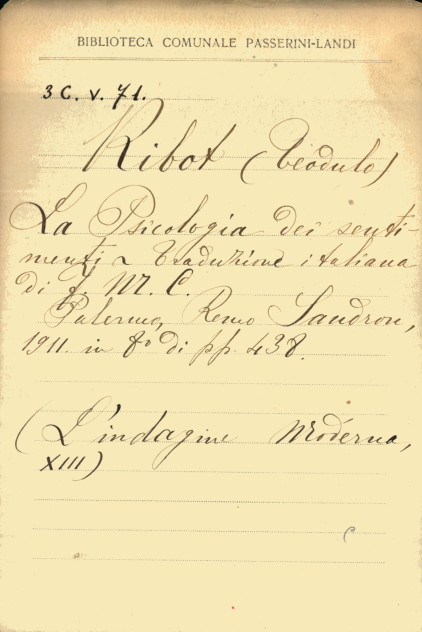 BIBLIOTECA COMUNALE PASSERINI-LANDI
3 C. V. 71.
Ribot (Teodulo)
La Psicologia dei senti-
menti ~ Traduzione italiana
di f. M. C.
Palermo, Remo Sandron,
1911. in 8º di pp. 438.
(L'indagine Moderna,
XIII)